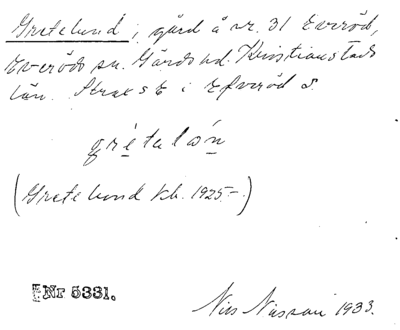 Gretelund; gård å nr. 31 Everöd,
Everöds sn. Gärds hd. Kristianstads
län. Strax E i Efveröd S.
gretalon
(Gretelund kb. 1925-)
Nr 5331.
Nils Nilsson 1933.